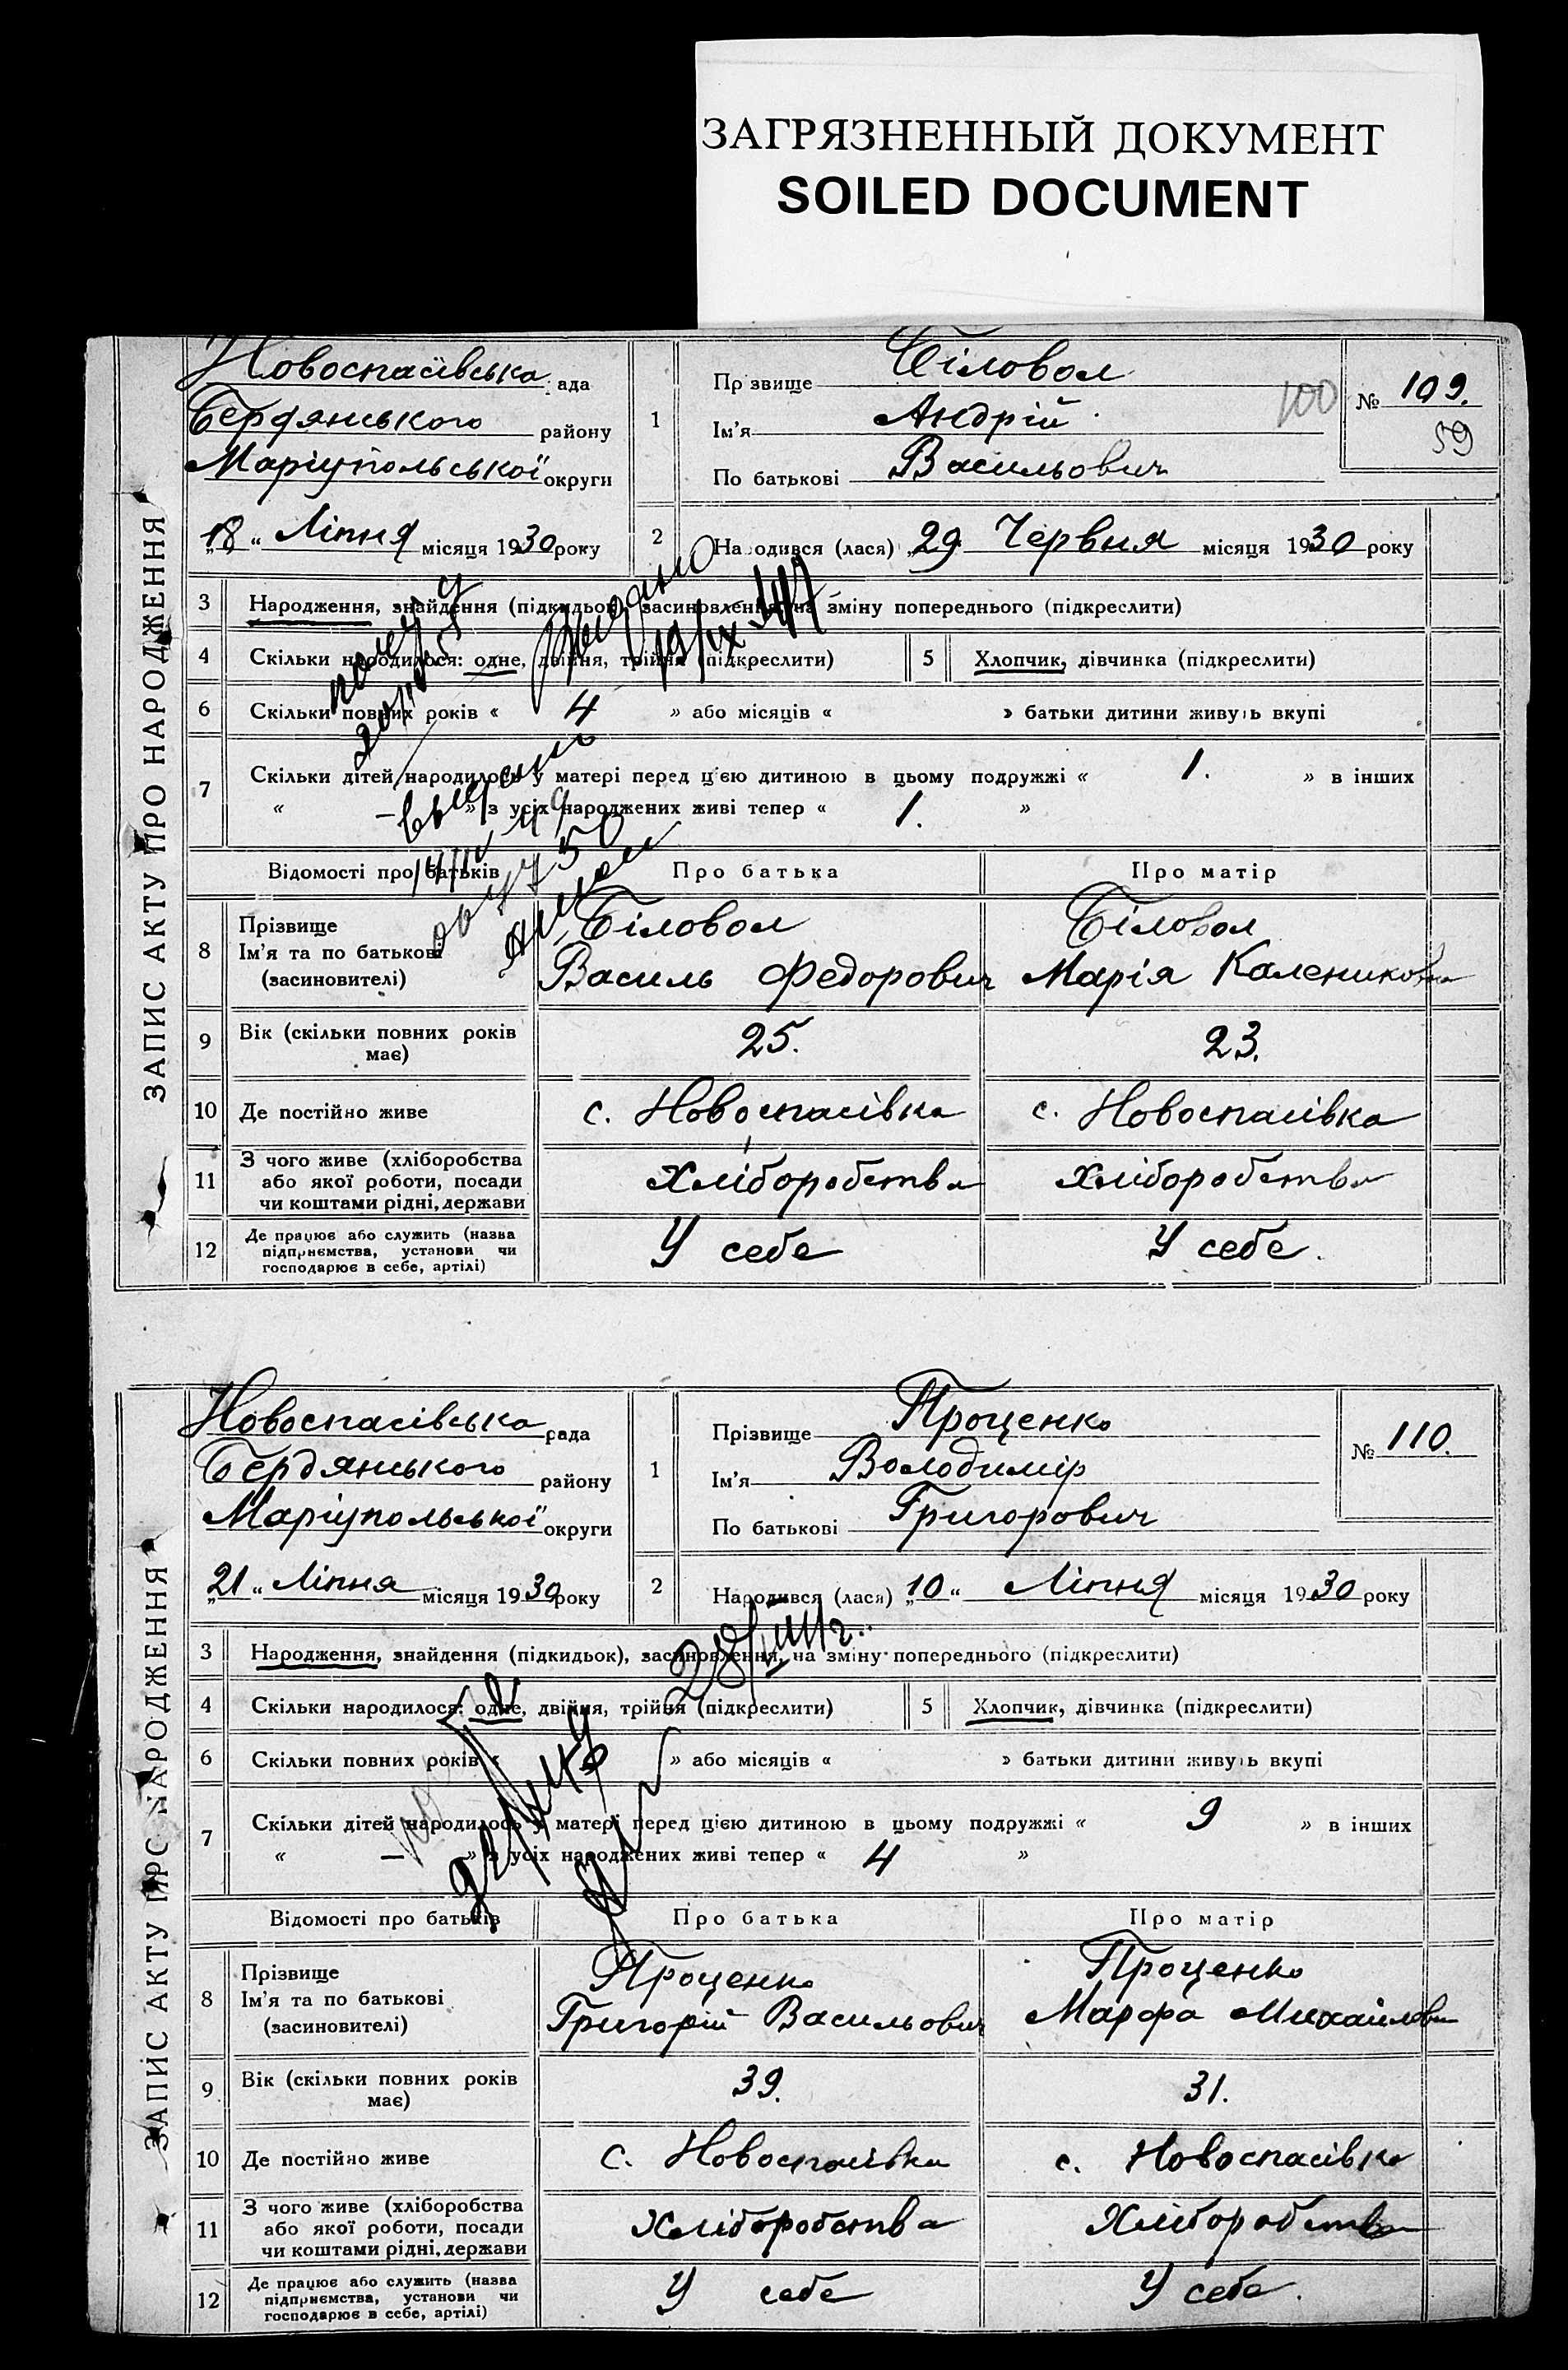 ЗАГРЯЗНЕННЫЙ ДОКУМЕНТ
SOILED DOCUMENT
ЗАПИС АКТУ ПРО НАРОДЖЕННЯ
Новоспасівська рада
Бердянського району
Маріупольської округи
„18“ Ліпня місяця 1930 року
1 Прізвище Біловол
Ім'я Андрій
По батькові Васильович
100
№ 109.
59
2 Народився (лася) „29 Червня місяця 1930 року
3 Народження, знайдення (підкидьок), засиновлення, на зміну попереднього (підкреслити)
4 Скільки народилося: одне, двійня, трійня (підкреслити) 5 Хлопчик, дівчинка (підкреслити)
6 Скільки повних років « 4 » або місяців « » батьки дитини живуть вкупі
7 Скільки дітей народилось у матері перед цією дитиною в цьому подружжі « 1. » в інших
« — » з усіх народжених живі тепер « 1. »
Видано
19/IX 47
Відомості про батьків Про батька Про матір
8 Прізвище Ім'я та по батькові (засиновителі)
Біловол Біловол
Василь Федорович Марія Калениковна
9 Вік (скільки повних років має) 25. 23.
10 Де постійно живе с. Новоспасівка с. Новоспасівка
11 З чого живе (хліборобства або якої роботи, посади чи коштами рідні, держави Хліборобства Хліборобства
12 Де працює або служить (назва підприємства, установи чи господарює в себе, артілі) У себе У себе.
ЗАПИС АКТУ ПРО НАРОДЖЕННЯ
Новоспасівська рада
Бердянського району
Маріупольської округи
„21“ Ліпня місяця 1930 року
1 Прізвище Проценко
Ім'я Володимір
По батькові Григорович
№ 110.
2 Народився (лася) „10“ Ліпня місяця 1930 року
3 Народження, знайдення (підкидьок), засиновлення, на зміну попереднього (підкреслити)
4 Скільки народилося: одне, двійня, трійня (підкреслити) 5 Хлопчик, дівчинка (підкреслити)
6 Скільки повних років « » або місяців « » батьки дитини живуть вкупі
7 Скільки дітей народилось у матері перед цією дитиною в цьому подружжі « 9 » в інших
« — » з усіх народжених живі тепер « 4 »
Відомості про батьків Про батька Про матір
8 Прізвище Ім'я та по батькові (засиновителі)
Проценко Проценко
Григорій Васильович Марфа Михайловна
9 Вік (скільки повних років має) 39. 31.
10 Де постійно живе с. Новоспасівка с. Новоспасівка
11 З чого живе (хліборобства або якої роботи, посади чи коштами рідні, держави Хліборобства Хліборобства
12 Де працює або служить (назва підприємства, установи чи господарює в себе, артілі) У себе У себе.